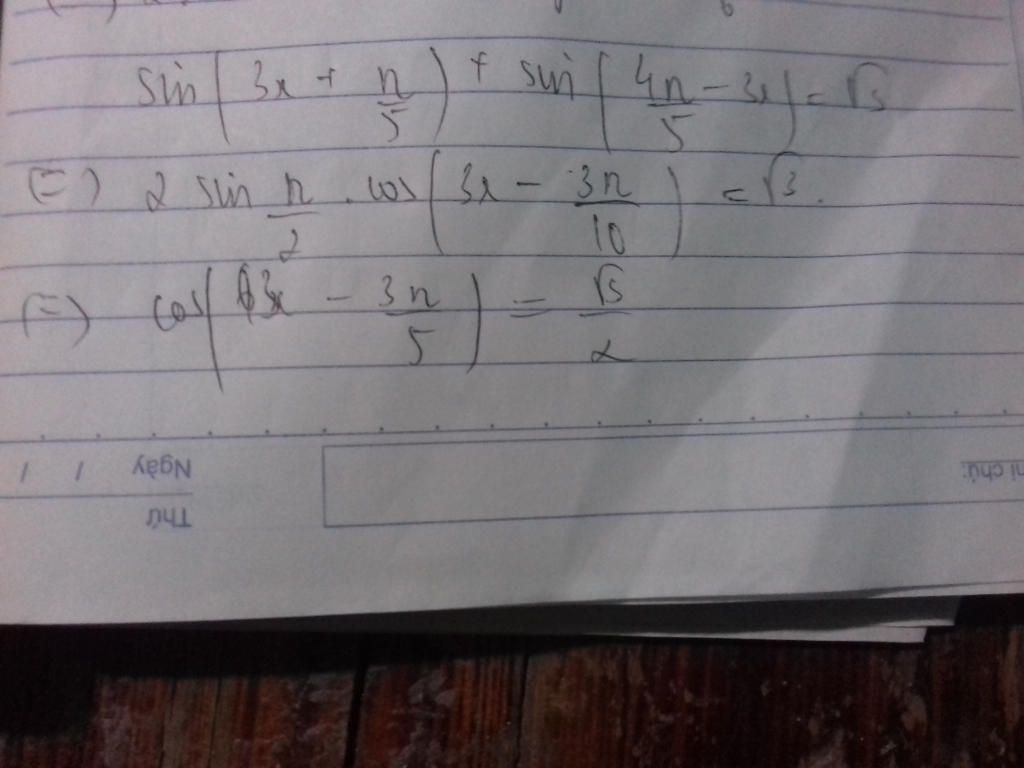 sin(3x + π/5) + sin(4π/5 - 3x) = √3
(=) 2 sin π/2 . cos(3x - 3π/10) = √3.
(=) cos(3x - 3π/5) = √3/2
Ngày / /
Thứ
hi chú: